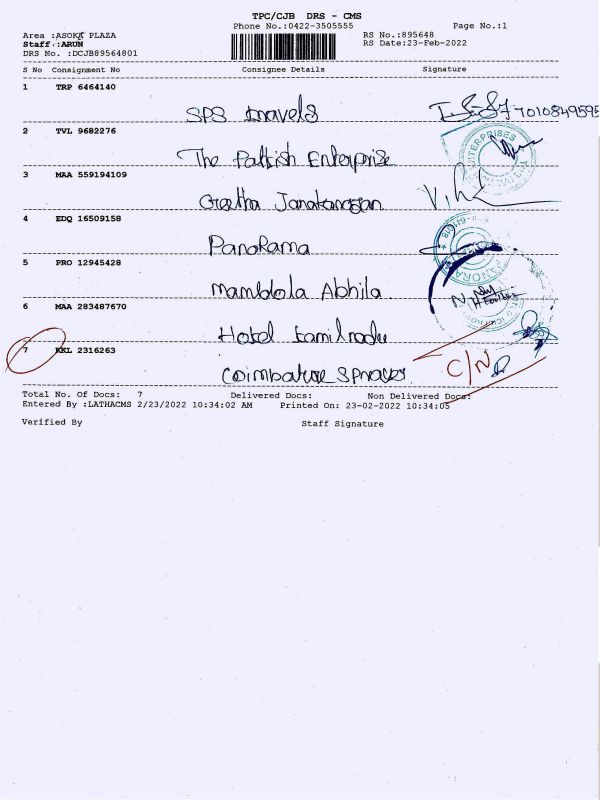 TPC/CJB DRS - CMS
Phone No.:0422-3505555 Page No.:1
Area :ASOKA PLAZA RS No.:895648
Staff :ARUN RS Date:23-Feb-2022
DRS No. :DCJB89564801
S No Consignment No Consignee Details Signature
1 TRP 6464140
SPS travels
2 TVL 9682276
The Pattish Enterprise
3 MAA 559194109
Geetha Janakarajan
4 EDQ 16509158
Panorama
5 PRO 12945428
Abhila
6 MAA 283487670
Hotel tamilnadu
7 KKL 2316263
Coimbatore
C/N
Total No. Of Docs: 7 Delivered Docs: Non Delivered Docs:
Entered By :LATHACMS 2/23/2022 10:34:02 AM Printed On: 23-02-2022 10:34:05
Verified By Staff Signature